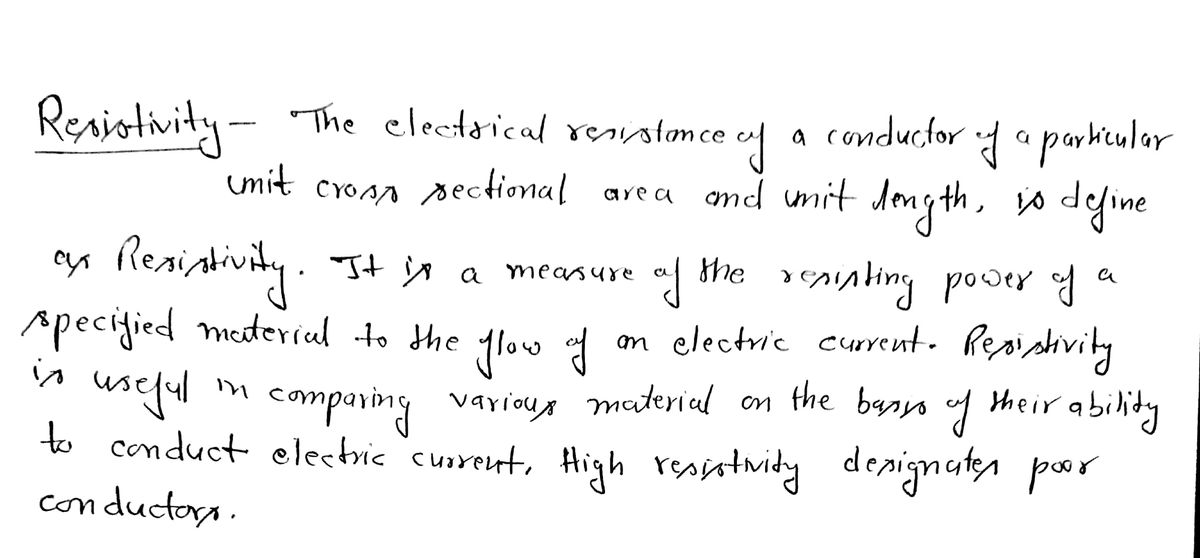 Resistivity - The electrical resistance of a conductor of a particular
unit cross sectional area and unit length, is define
as Resistivity. It is a measure of the resisting power of a
specified material to the flow of an electric current. Resistivity
is useful in comparing various material on the basis of their ability
to conduct electric current. High resistivity designates poor
conductors.